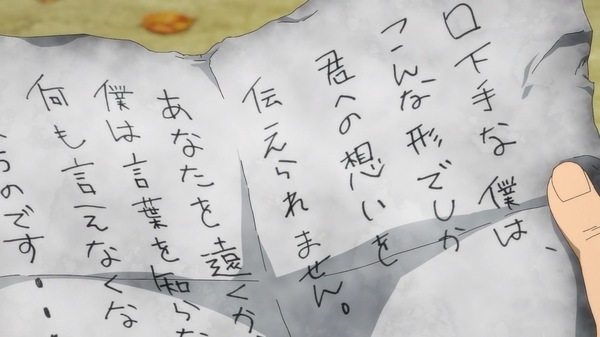 口下手な僕は、
こんな形でしか
君への想いを
伝えられません。
あなたを遠くか
僕は言葉を知らな
何も言えなくな
うのです・・・